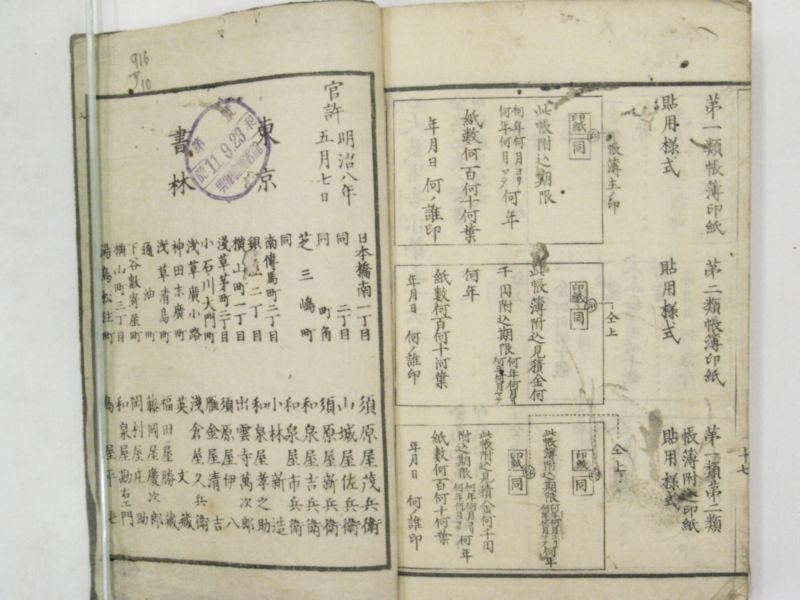 第一類帳簿印紙
貼用様式
帳簿主ノ印
印紙
同
此帳附込期限
何年何月ヨリ
何年何月マテ
何年
紙數何百何十何葉
年月日 何ノ誰印
第二類帳簿印紙
貼用様式
仝上
印紙
同
此帳簿附込見積金何
千円附込期限
何年何月ヨリ
何年何月マテ
何年
紙數何百何十何葉
年月日 何ノ誰印
第一類第二類
帳簿附込印紙
貼用様式
仝上
印紙
同
此帳簿附込期限
何年何月ヨリ
何年何月マテ
何年
印紙
同
此帳附込見積金何千円
附込期限
何年何月ヨリ
何年何月マテ
何年
紙數何百何十何葉
年月日 何ノ誰印
十七
916
10
官許 明治八年
五月七日
東京
書林
11.9.23
日本橋南一丁目 須原屋茂兵衛
同 二丁目 山城屋佐兵衛
同 町角 須原屋新兵衛
芝三嶋町 和泉屋吉兵衛
同 和泉屋市兵衛
南傳馬町二丁目 小林新造
銀座二丁目 和泉屋孝之助
横山町一丁目 出雲寺萬次郎
淺草茅町二丁目 須原屋伊八
小石川大門町 雁金屋清吉
淺草廣小路 淺倉屋久兵衛
神田末廣町 英文藏
淺草清島町 福田屋勝藏
通油町 藤岡屋慶次郎
下谷數寄屋町 岡村屋庄助
横山町三丁目 和泉屋勘右エ門
湯島松住町 島屋平七